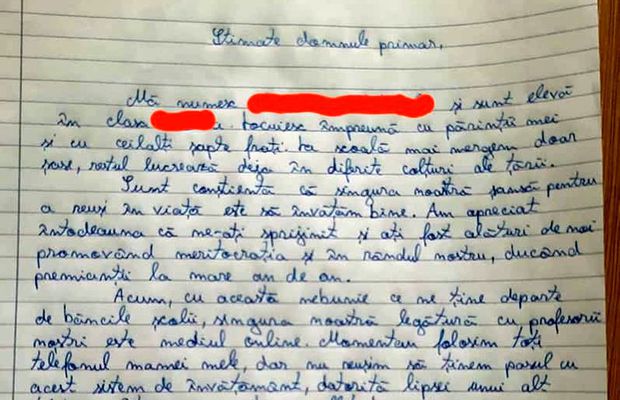 Stimate domnule primar,
Mă numesc și sunt elevă
în clasa a. Locuiesc împreună cu părinții mei
și cu ceilalți șapte frați. La școală mai mergem doar
șase, restul lucrează deja în diferite colțuri ale țării.
Sunt conștientă că singura noastră șansă pentru
a reuși în viață este să învățăm bine. Am apreciat
întodeauna că ne-ați sprijinit și ați fost alături de noi
promovând meritocrația și în rândul nostru, ducând
premianții la mare an de an.
Acum, cu această nebunie ce ne ține departe
de băncile școlii, singura noastră legătură cu profesorii
noștri este mediul online. Momentan folosim toți
telefonul mamei mele, dar nu reușim să ținem pasul cu
acest sistem de învățământ, datorită lipsei unui alt